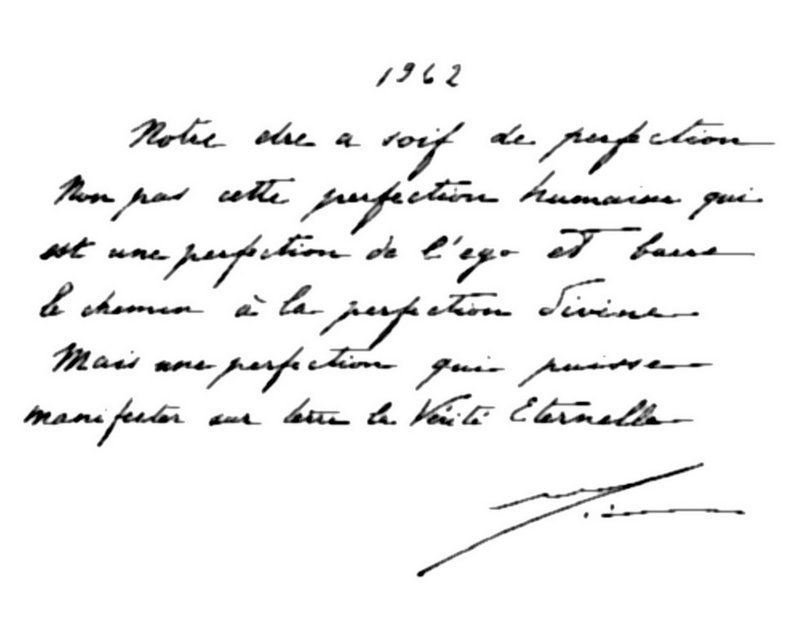 1962
Notre être a soif de perfection
Non pas cette perfection humaine qui
est une perfection de l'ego et barre
le chemin à la perfection Divine
Mais une perfection qui puisse
manifester sur terre la Vérité Eternelle